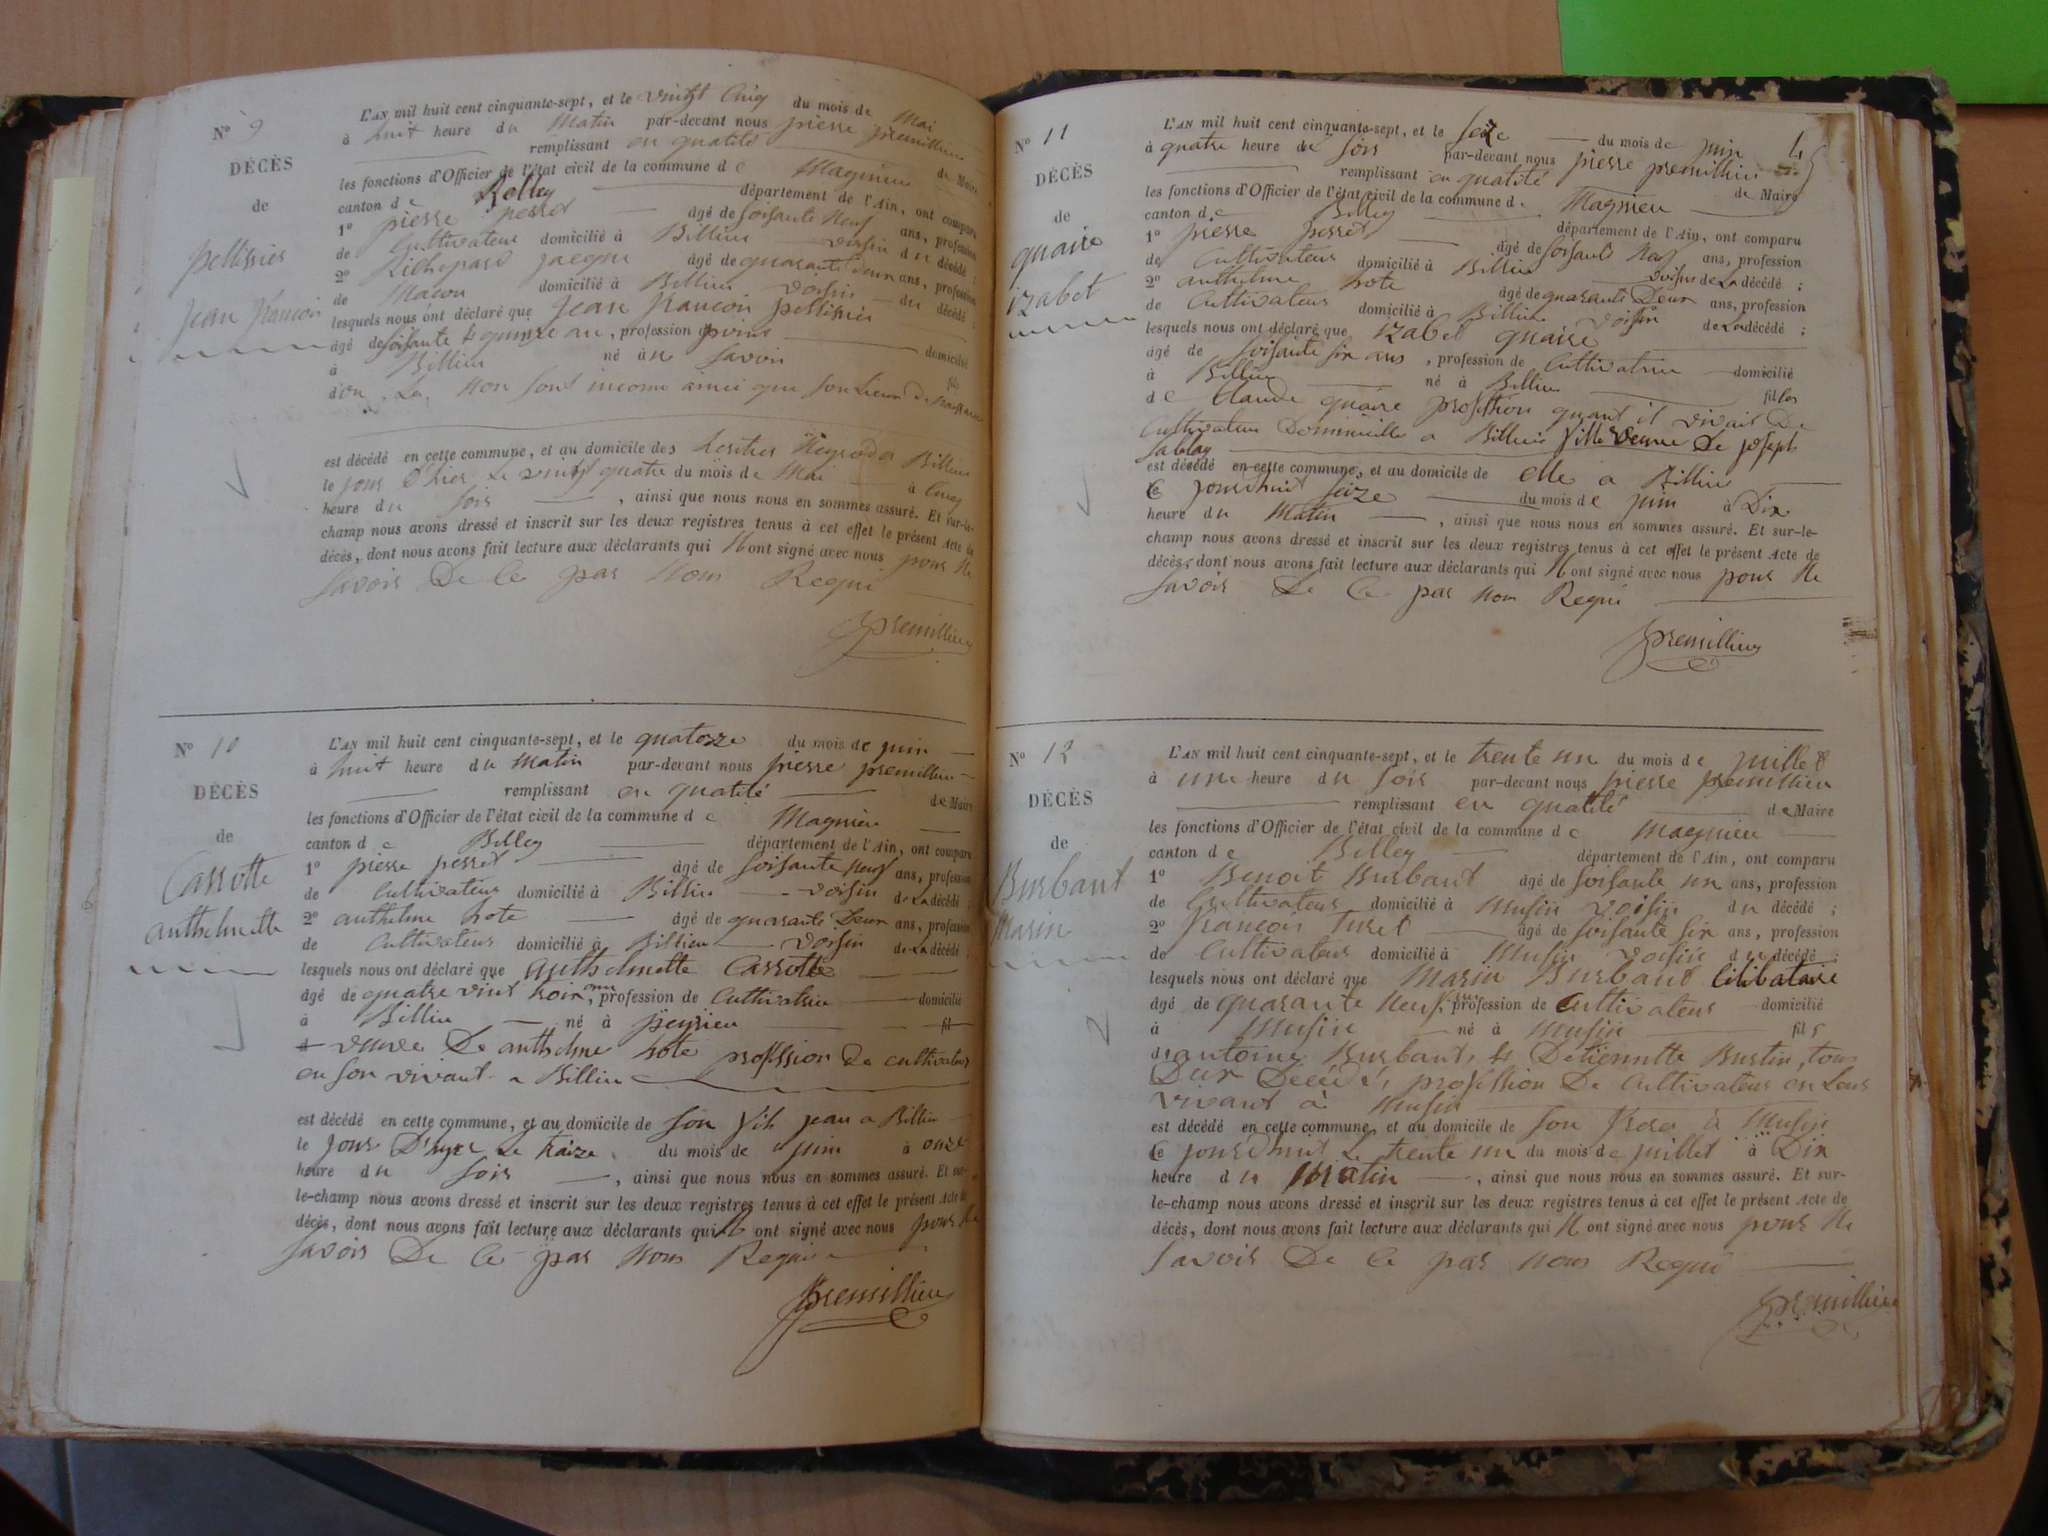 N° 9
DÉCÈS
de
pellissier
jean françois
L'AN mil huit cent cinquante-sept, et le vintgt cinq du mois de Mai
à huit heure du Matin par-devant nous pierre premillieu
remplissant en quatité de Maire
les fonctions d'Officier de l'état civil de la commune de Magnieu
canton de Belley département de l'Ain, ont comparu
1° pierre perret âgé de soisante neuf ans, profession
de Cultivateur domicilié à Billieu voisin du décédé ;
2° Richepard jacque âgé de quarante deux ans, profession
de Macon domicilié à Billieu voisin du décédé ;
lesquels nous ont déclaré que jean francois pellissier
âgé de soisante et quinze an, profession domicilié
à Billieu né à ne savoir fils
d'on Le Non sont inconu ainci que son Lieux de naissance
est décédé en cette commune, et au domicile des heritier à Billieu
le jour d'hier Le vintgt quatre du mois de Mai à cinq
heure du soir, ainsi que nous nous en sommes assuré. Et sur-le-
champ nous avons dressé et inscrit sur les deux registres tenus à cet effet le présent Acte de
décès, dont nous avons fait lecture aux déclarants qui N ont signé avec nous pour Ne
savoir De Ce par Nous Requi
premillieu
N° 10
DÉCÈS
de
Carrotte
anthelmette
L'AN mil huit cent cinquante-sept, et le quatorze du mois de juin
à huit heure du Matin par-devant nous pierre premillieu
remplissant en quatité de Maire
les fonctions d'Officier de l'état civil de la commune de Magnieu
canton de Belley département de l'Ain, ont comparu
1° pierre perret âgé de soisante neuf ans, profession
de Cultivateur domicilié à Billieu voisin de La décédé ;
2° anthelme hote âgé de quarante Deux ans, profession
de Cultivateur domicilié à Billieu voisin de La décédé ;
lesquels nous ont déclaré que anthelmette Carrotte
âgé de quatre vint troix ans, profession de Cultivatrice domicilié
à Billieu né à peyrieu fil
d veuve De anthelme hote profession de cultivateur
en son vivant a Billieu
est décédé en cette commune, et au domicile de son fils jean a Billieu
le jour D'hyer Le traize du mois de juin à onze
heure du soir, ainsi que nous nous en sommes assuré. Et sur-
le-champ nous avons dressé et inscrit sur les deux registres tenus à cet effet le présent Acte de
décès, dont nous avons fait lecture aux déclarants qui N ont signé avec nous pour Ne
savoir De Ce par Nous Requi
premillieu
N° 11
DÉCÈS
de
quaire
izabet
L'AN mil huit cent cinquante-sept, et le seize du mois de juin
à quatre heure du soir par-devant nous pierre premillieu
remplissant en quatité de Maire
les fonctions d'Officier de l'état civil de la commune de Magnieu
canton de Belley département de l'Ain, ont comparu
1° pierre perret âgé de soisante Neuf ans, profession
de Cultivateur domicilié à Billieu voisin de La décédé ;
2° anthelme hote âgé de quarante Deux ans, profession
de Cultivateur domicilié à Billieu voisin de La décédé ;
lesquels nous ont déclaré que izabet quaire
âgé de soisante six ans, profession de Cultivatrice domicilié
à Billieu né à Billieu filles
de Claude quaire profession quant il vivait De
Cultivateur Dommicille a Billieu fille veuve De joseph
Sablay
est décédé en cette commune, et au domicile de elle a Billieu
Ce jourd'huit seize du mois de juin à Dix
heure du Matin, ainsi que nous nous en sommes assuré. Et sur-le-
champ nous avons dressé et inscrit sur les deux registres tenus à cet effet le présent Acte de
décès, dont nous avons fait lecture aux déclarants qui N ont signé avec nous pour Ne
savoir De Ce par Nous Requi
premillieu
N° 12
DÉCÈS
de
Burbant
Marin
L'AN mil huit cent cinquante-sept, et le trente un du mois de juillet
à une heure du soir par-devant nous pierre premillieu
remplissant en quatité de Maire
les fonctions d'Officier de l'état civil de la commune de Magnieu
canton de Belley département de l'Ain, ont comparu
1° Benoit Burbant âgé de soisante un ans, profession
de Cultivateur domicilié à Musin voisin du décédé ;
2° françois turet âgé de soisante six ans, profession
de Cultivateur domicilié à Musin voisin du décédé ;
lesquels nous ont déclaré que Marin Burbant Celibataire
âgé de quarante Neuf, profession de Cultivateur domicilié
à Musin né à Musin fils
de antoine Burbant, et De Burtin, tous
Deux Décédés, profession De Cultivateur en Leur
vivant à Musin
est décédé en cette commune, et au domicile de son frere à Musin
Ce jourd'huit Le trente un du mois de juillet à Dix
heure du Matin, ainsi que nous nous en sommes assuré. Et sur-
le-champ nous avons dressé et inscrit sur les deux registres tenus à cet effet le présent Acte de
décès, dont nous avons fait lecture aux déclarants qui N ont signé avec nous pour Ne
savoir De Ce par Nous Requi
premillieu